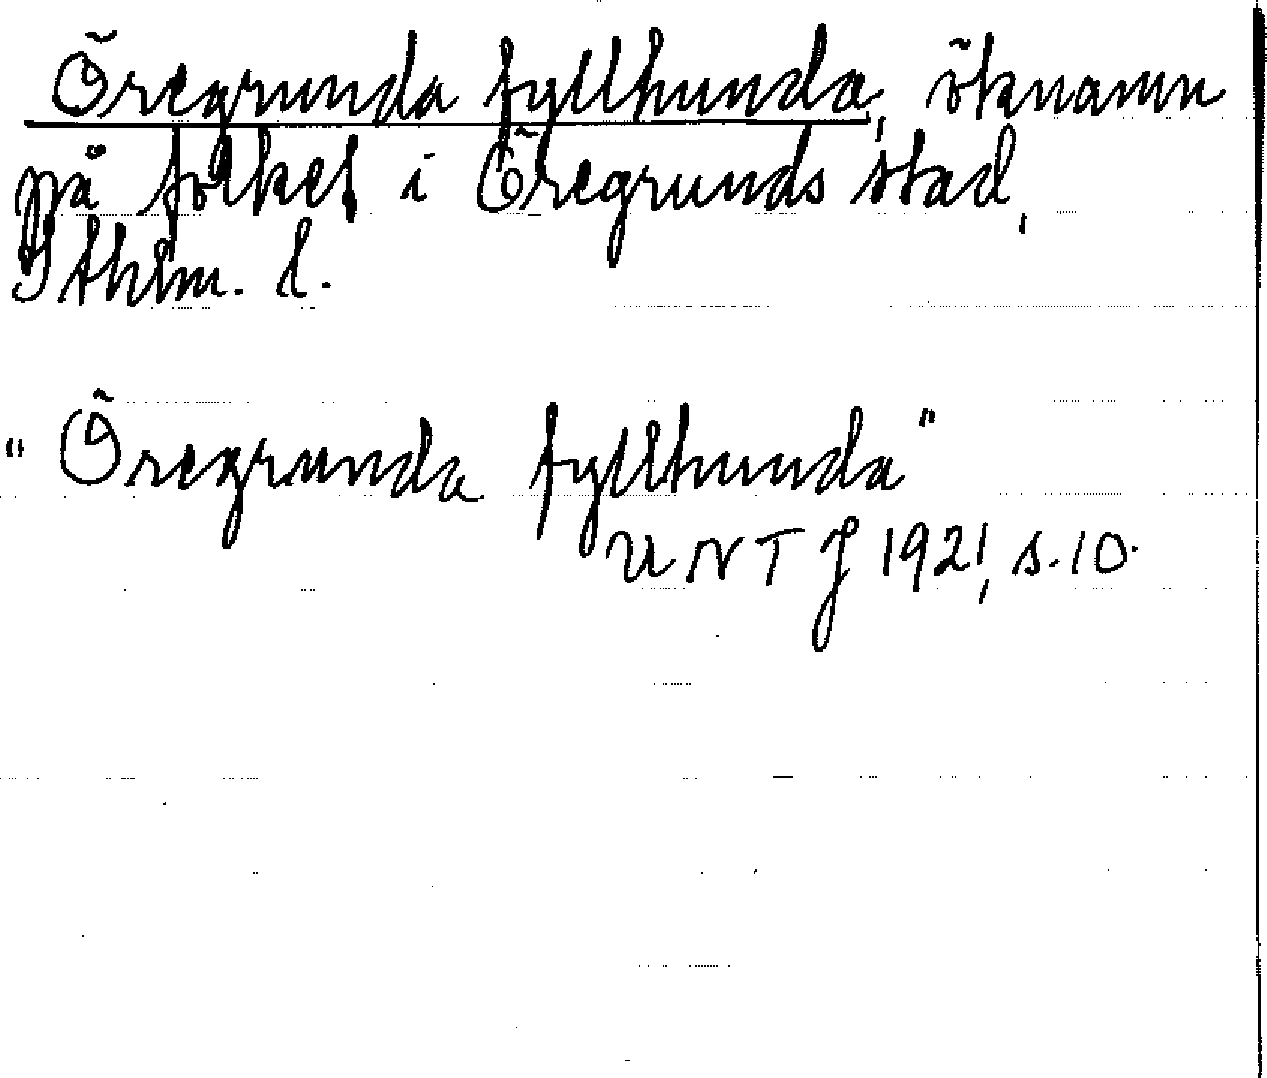 Öregrunda fyllhunda, öknamn
på folket i Öregrunds stad,
Sthlm. l.
"Öregrunda fyllhunda"
UNTJ 1921, s. 10.